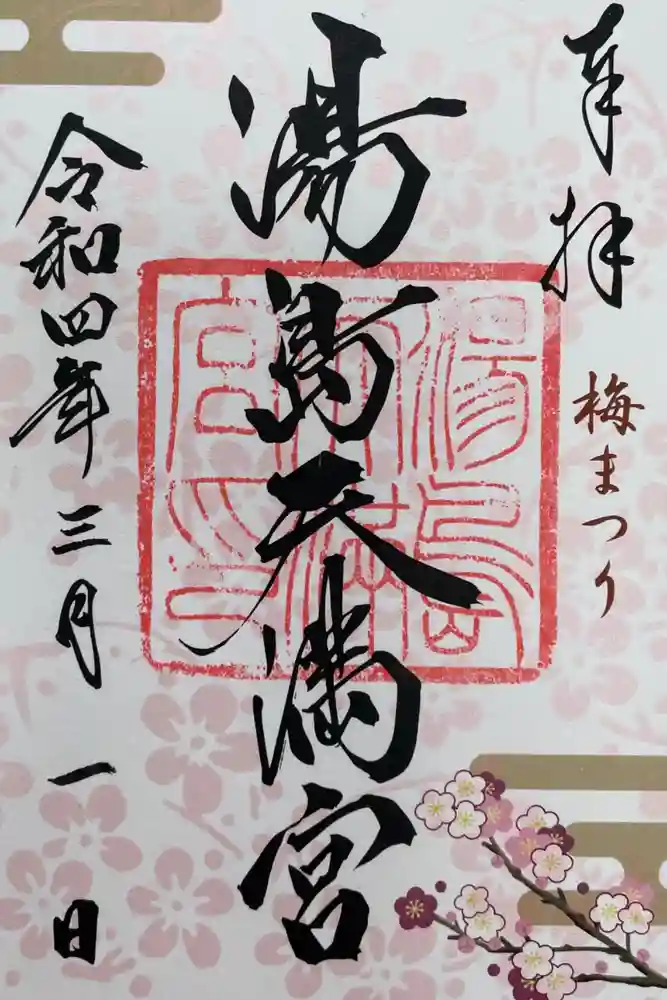 奉拝
梅まつり
湯島天満宮
湯島天満宮印
令和四年三月一日